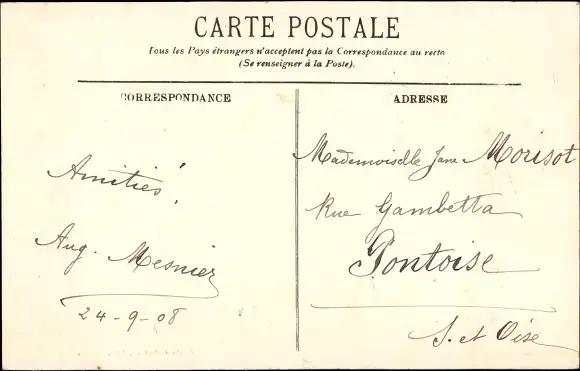 CARTE POSTALE
Tous les Pays étrangers n'acceptent pas la Correspondance au recto
(Se renseigner à la Poste).
CORRESPONDANCE
Amitiés,
Aug. Mesnier
24-9-08
ADRESSE
Mademoiselle Jane Morisot
Rue Gambetta
Pontoise
S. et Oise